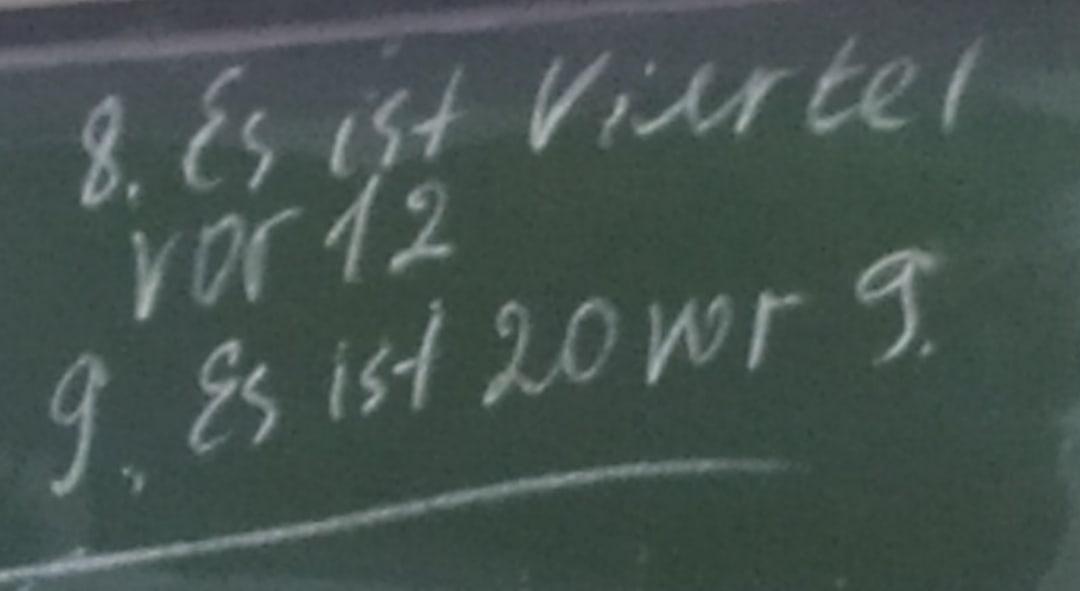 8. Es ist Viertel
vor 12
9. Es ist 20 vor 9.